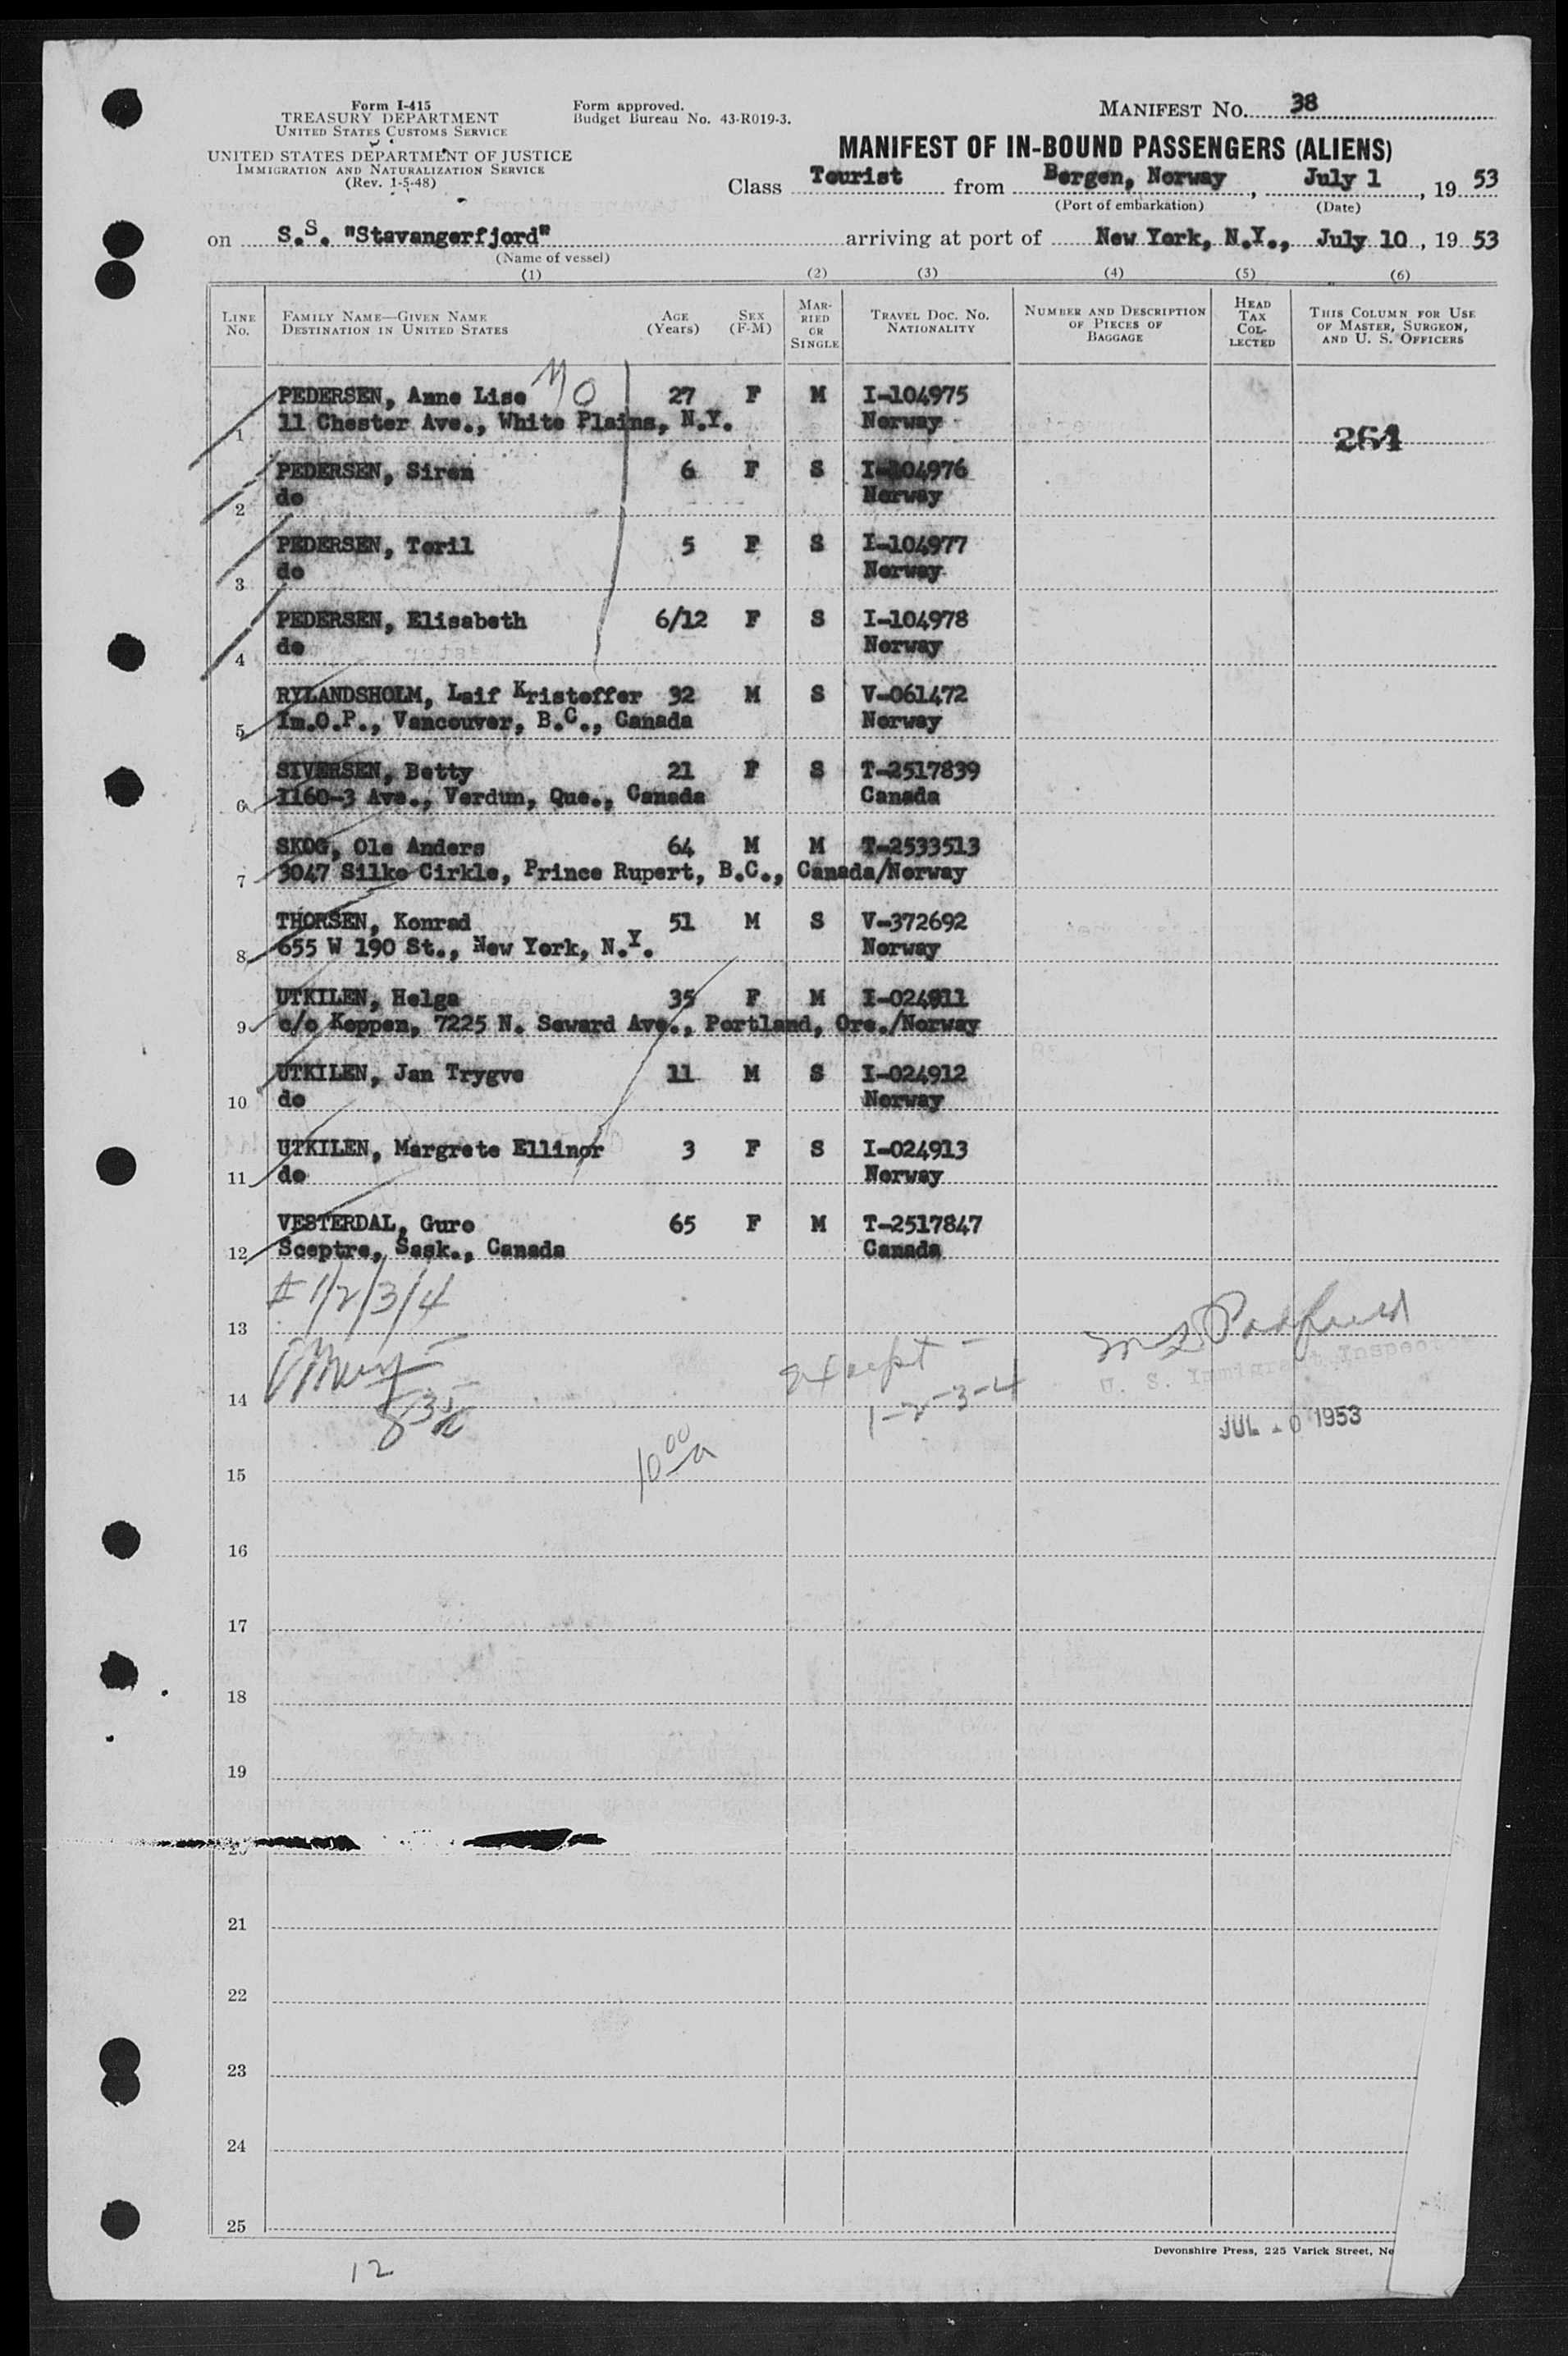 Form I-415
TREASURY DEPARTMENT
UNITED STATES CUSTOMS SERVICE
UNITED STATES DEPARTMENT OF JUSTICE
IMMIGRATION AND NATURALIZATION SERVICE
(Rev. 1-5-48)
Form approved.
Budget Bureau No. 43-R019-3.
MANIFEST No. 38
MANIFEST OF IN-BOUND PASSENGERS (ALIENS)
Class Tourist from Bergen, Norway, July 1, 19 53
(Port of embarkation) (Date)
on S.S. "Stavangerfjord" arriving at port of New York, N.Y., July 10, 19 53
(Name of vessel)
(1) (2) (3) (4) (5) (6)
LINE No. FAMILY NAME—GIVEN NAME DESTINATION IN UNITED STATES AGE (Years) SEX (F-M) MARRIED OR SINGLE TRAVEL DOC. NO. NATIONALITY NUMBER AND DESCRIPTION OF PIECES OF BAGGAGE HEAD TAX COLLECTED THIS COLUMN FOR USE OF MASTER, SURGEON, AND U. S. OFFICERS
PEDERSEN, Anne Lise 27 F M I-104975
1 11 Chester Ave., White Plains, N.Y. Norway 264
PEDERSEN, Siren 6 F S I-104976
2 do Norway
PEDERSEN, Toril 5 F S I-104977
3 do Norway
PEDERSEN, Elisabeth 6/12 F S I-104978
4 do Norway
RYLANDSHOLM, Leif Kristoffer 32 M S V-061472
5 Im.O.P., Vancouver, B.C., Canada Norway
SIVERSEN, Betty 21 F S T-2517839
6 1160-3 Ave., Verdun, Que., Canada Canada
SKOG, Ole Anders 64 M M T-2533513
7 3047 Silke Cirkle, Prince Rupert, B.C., Canada/Norway
THORSEN, Konrad 51 M S V-372692
8 655 W 190 St., New York, N.Y. Norway
UTKILEN, Helga 35 F M I-024911
9 c/o Koppen, 7225 N. Seward Ave., Portland, Ore./Norway
UTKILEN, Jan Trygve 11 M S I-024912
10 do Norway
UTKILEN, Margrete Ellinor 3 F S I-024913
11 do Norway
VESTERDAL, Guro 65 F M T-2517847
12 Sceptre, Sask., Canada Canada
# 1/2/3/4
13
except -
U. S. Immigrant Inspector
14
1-2-3-4
JUL 10 1953
10 00 a
15
16
17
18
19
20
21
22
23
24
25
Devonshire Press, 225 Varick Street, Ne
12